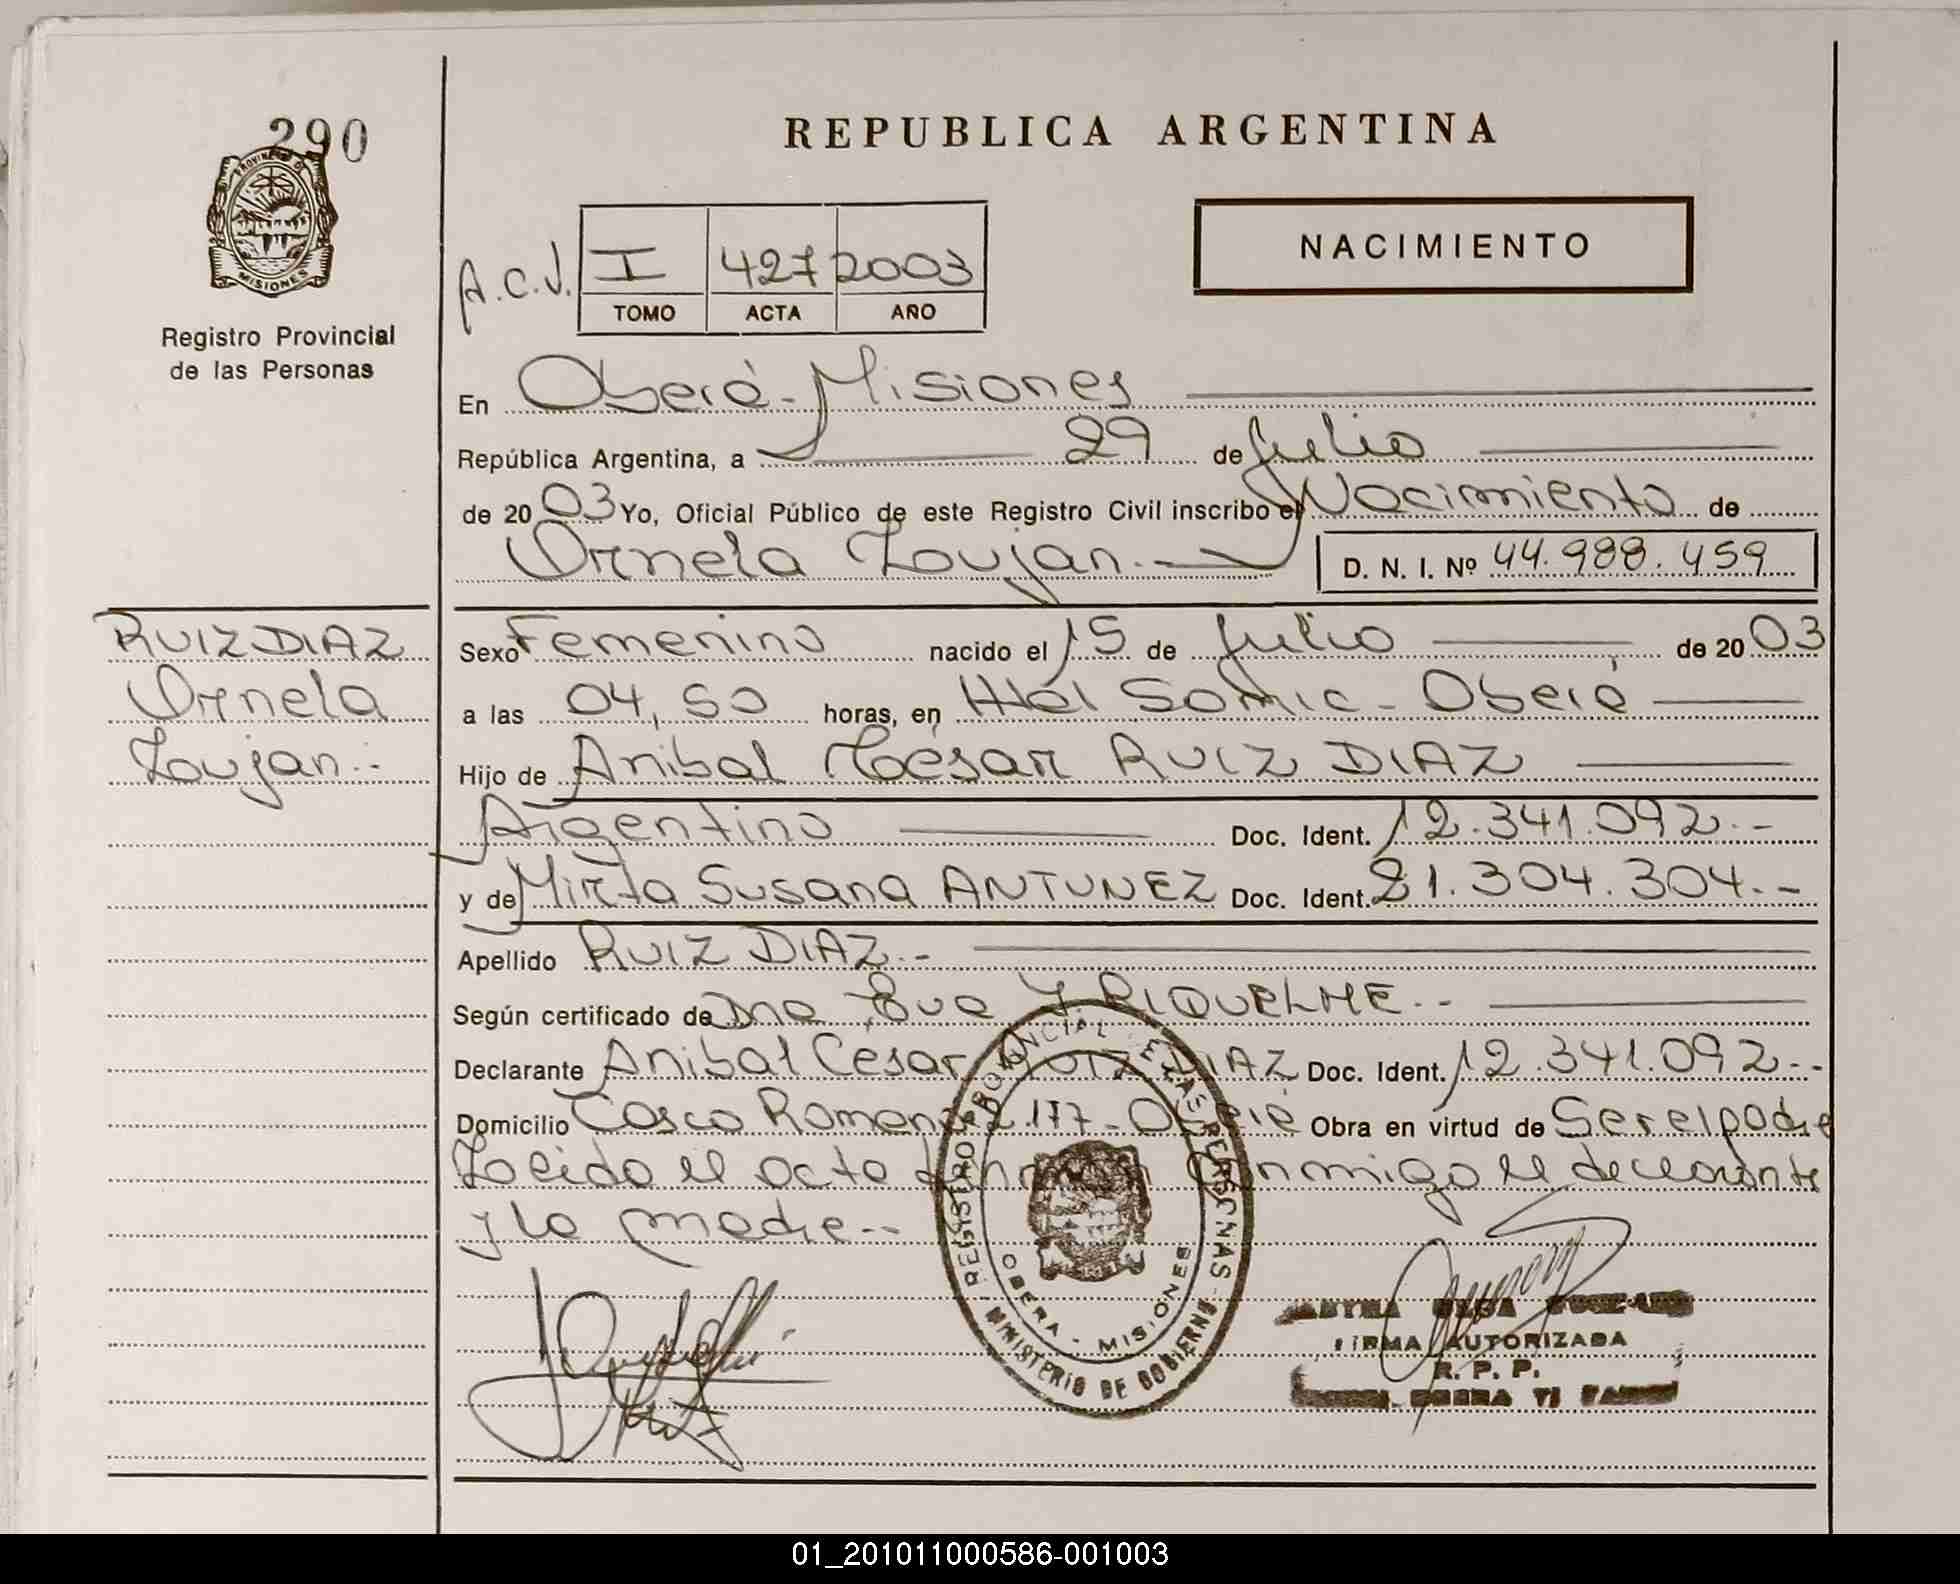 290
REPUBLICA ARGENTINA
PROVINCIA DE
MISIONES
Registro Provincial
de las Personas
NACIMIENTO
A.C.J. I 427 2003
TOMO ACTA AÑO
En Oberá-Misiones
República Argentina, a 29 de Julio
de 2003 Yo, Oficial Público de este Registro Civil inscribo el Nacimiento de
Ornela Loujan.- D. N. I. Nº 44.988.459
RUIZ DIAZ
Ornela
Loujan.-
Sexo Femenino nacido el 15 de Julio de 2003
a las 04,50 horas, en Htal Samic - Oberá
Hijo de Anibal César RUIZ DIAZ
Argentino Doc. Ident. 12.341.092.-
y de Mirta Susana ANTUNEZ Doc. Ident. 21.304.304.-
Apellido RUIZ DIAZ.-
Según certificado de Dra Eva Y RIQUELME.-
Declarante Anibal Cesar RUIZ DIAZ Doc. Ident. 12.341.092.-
Domicilio Casco Romano 2.177- Oberá Obra en virtud de Ser el padre
Leido el acta firman conmigo el declarante
y la madre.-
REGISTRO PROVINCIAL DE LAS PERSONAS
MINISTERIO DE GOBIERNO
OBERA - MISIONES
OLGA
FIRMA AUTORIZADA
R. P. P.
01_201011000586-001003